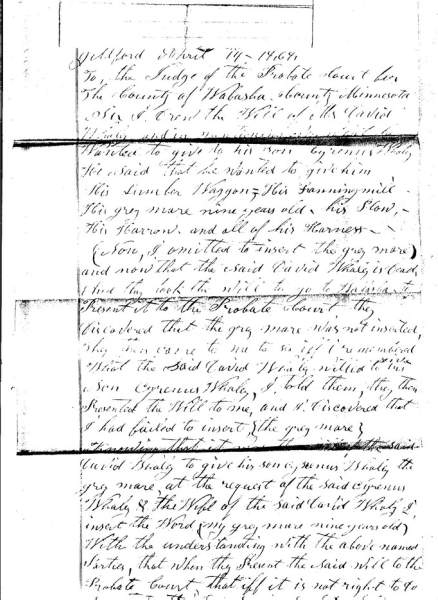 Milford April 19 - 1864.
To, the Judge of the Probate Court for
the County of Wabasha County Minnesota
Sir I Drew the Will of Mr David
Whaly and in
Wanted to give to his son Cyrenus Whaly
He Said that he wanted to give him
His Lumber Waggon, His Fanning mill -
His grey mare nine years old - his Plow, -
His Harrow. and all of his Harness -
(Now, I omitted to insert the grey mare)
and now that the Said David Whaly is Dead,
and they took the will to go to
Present it to the Probate Court they
Discovered that the grey mare was not inserted,
they then came to me to see iff I remembered
What the Said David Whaly willed to his
Son Cyrenus Whaly, I told them, they then
Presented the Will to me, and I Discovered that
I had failed to insert (the grey mare)
Knowing that it was the said
David Whaly to give his son Cyrenus Whaly the
grey mare, at the request of the said Cyrenus
Whaly & the Wife of the Said David Whaly I
insert the Word (my grey mare nine years old)
With the understanding with the above named
Parties, that when they Present the Said will to the
Probate Court, that iff it is not right to so